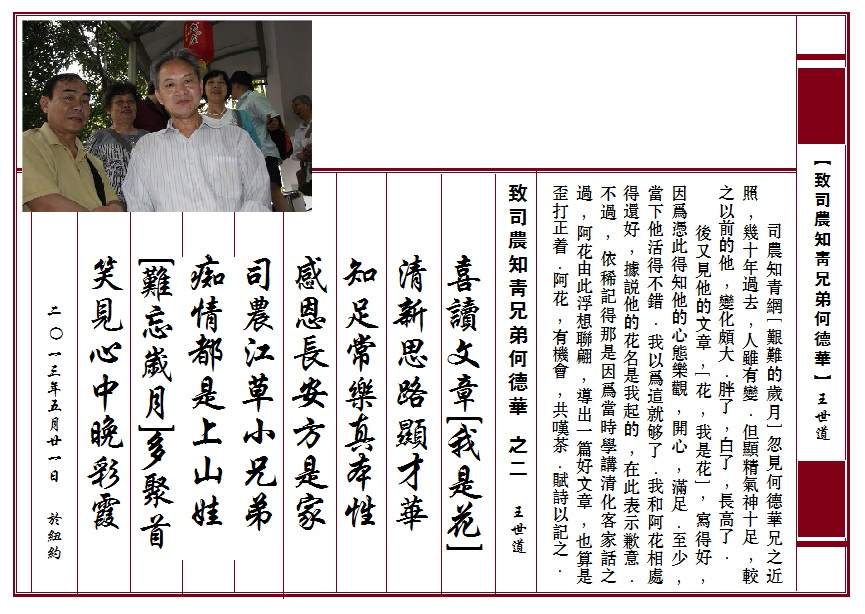 【致司農知青兄弟何德華】王世道
司農知青網[艱難的歲月]忽見何德華兄之近
照，幾十年過去，人雖有變．但顯精氣神十足，較
之以前的他，變化頗大．胖了，白了，長高了．
後又見他的文章，[花，我是花]，寫得好，
因爲憑此得知他的心態樂觀，開心，滿足．至少，
當下他活得不錯．我以爲這就够了．我和阿花相處
得還好，據説他的花名是我起的，在此表示歉意．
不過，依稀記得那是因爲當時學講清化客家話之
過，阿花由此浮想聯翩，導出一篇好文章，也算是
歪打正着．阿花，有機會，共嘆茶．賦詩以記之．
致司農知青兄弟何德華 之二 王世道
喜讀文章[我是花]
清新思路顯才華
知足常樂真本性
感恩長安方是家
司農江草小兄弟
痴情都是上山娃
[難忘歲月]多聚首
笑見心中晚彩霞
二〇一三年五月廿一日 於紐約